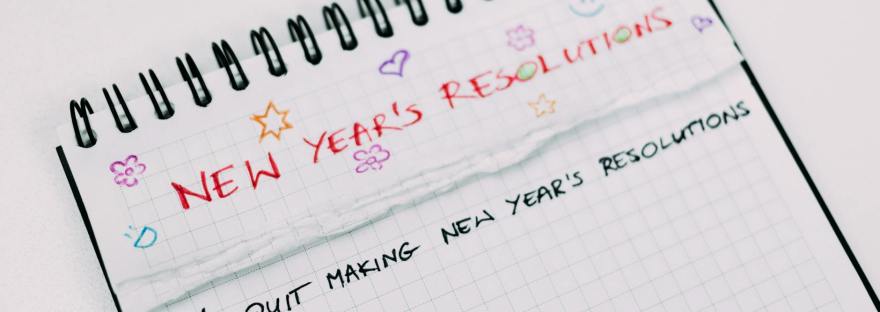 NEW YEAR'S RESOLUTIONS
QUIT MAKING NEW YEAR'S RESOLUTIONS